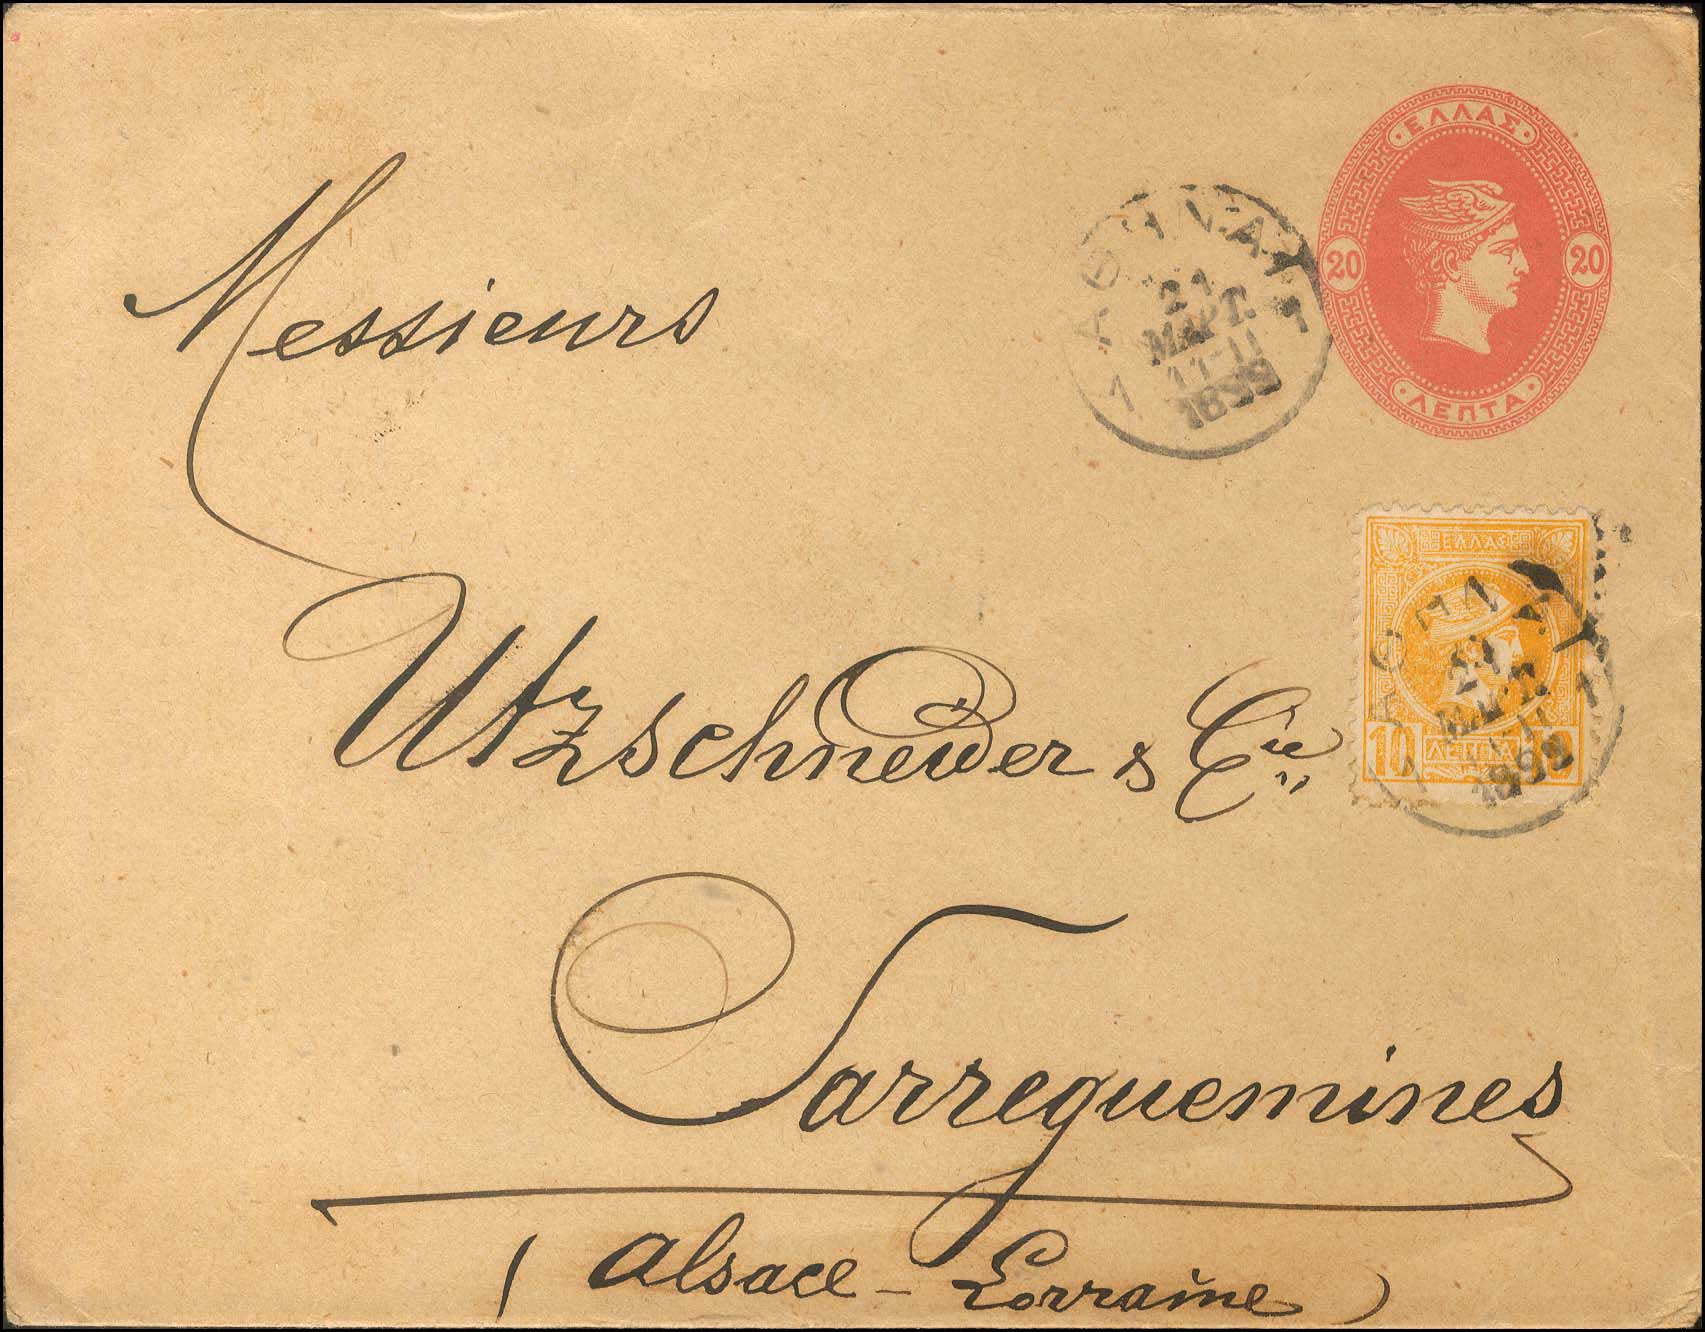 ΕΛΛΑΣ
20 20
ΛΕΠΤΑ
ΑΘΗΝΑΙ
21
ΜΑΡΤ.
11-11
1899
1 1
Messieurs
ΕΛΛΑΣ
10 ΛΕΠΤΑ 10
1899
Utzschneider & Cie
Sarreguemines
(Alsace-Lorraine)